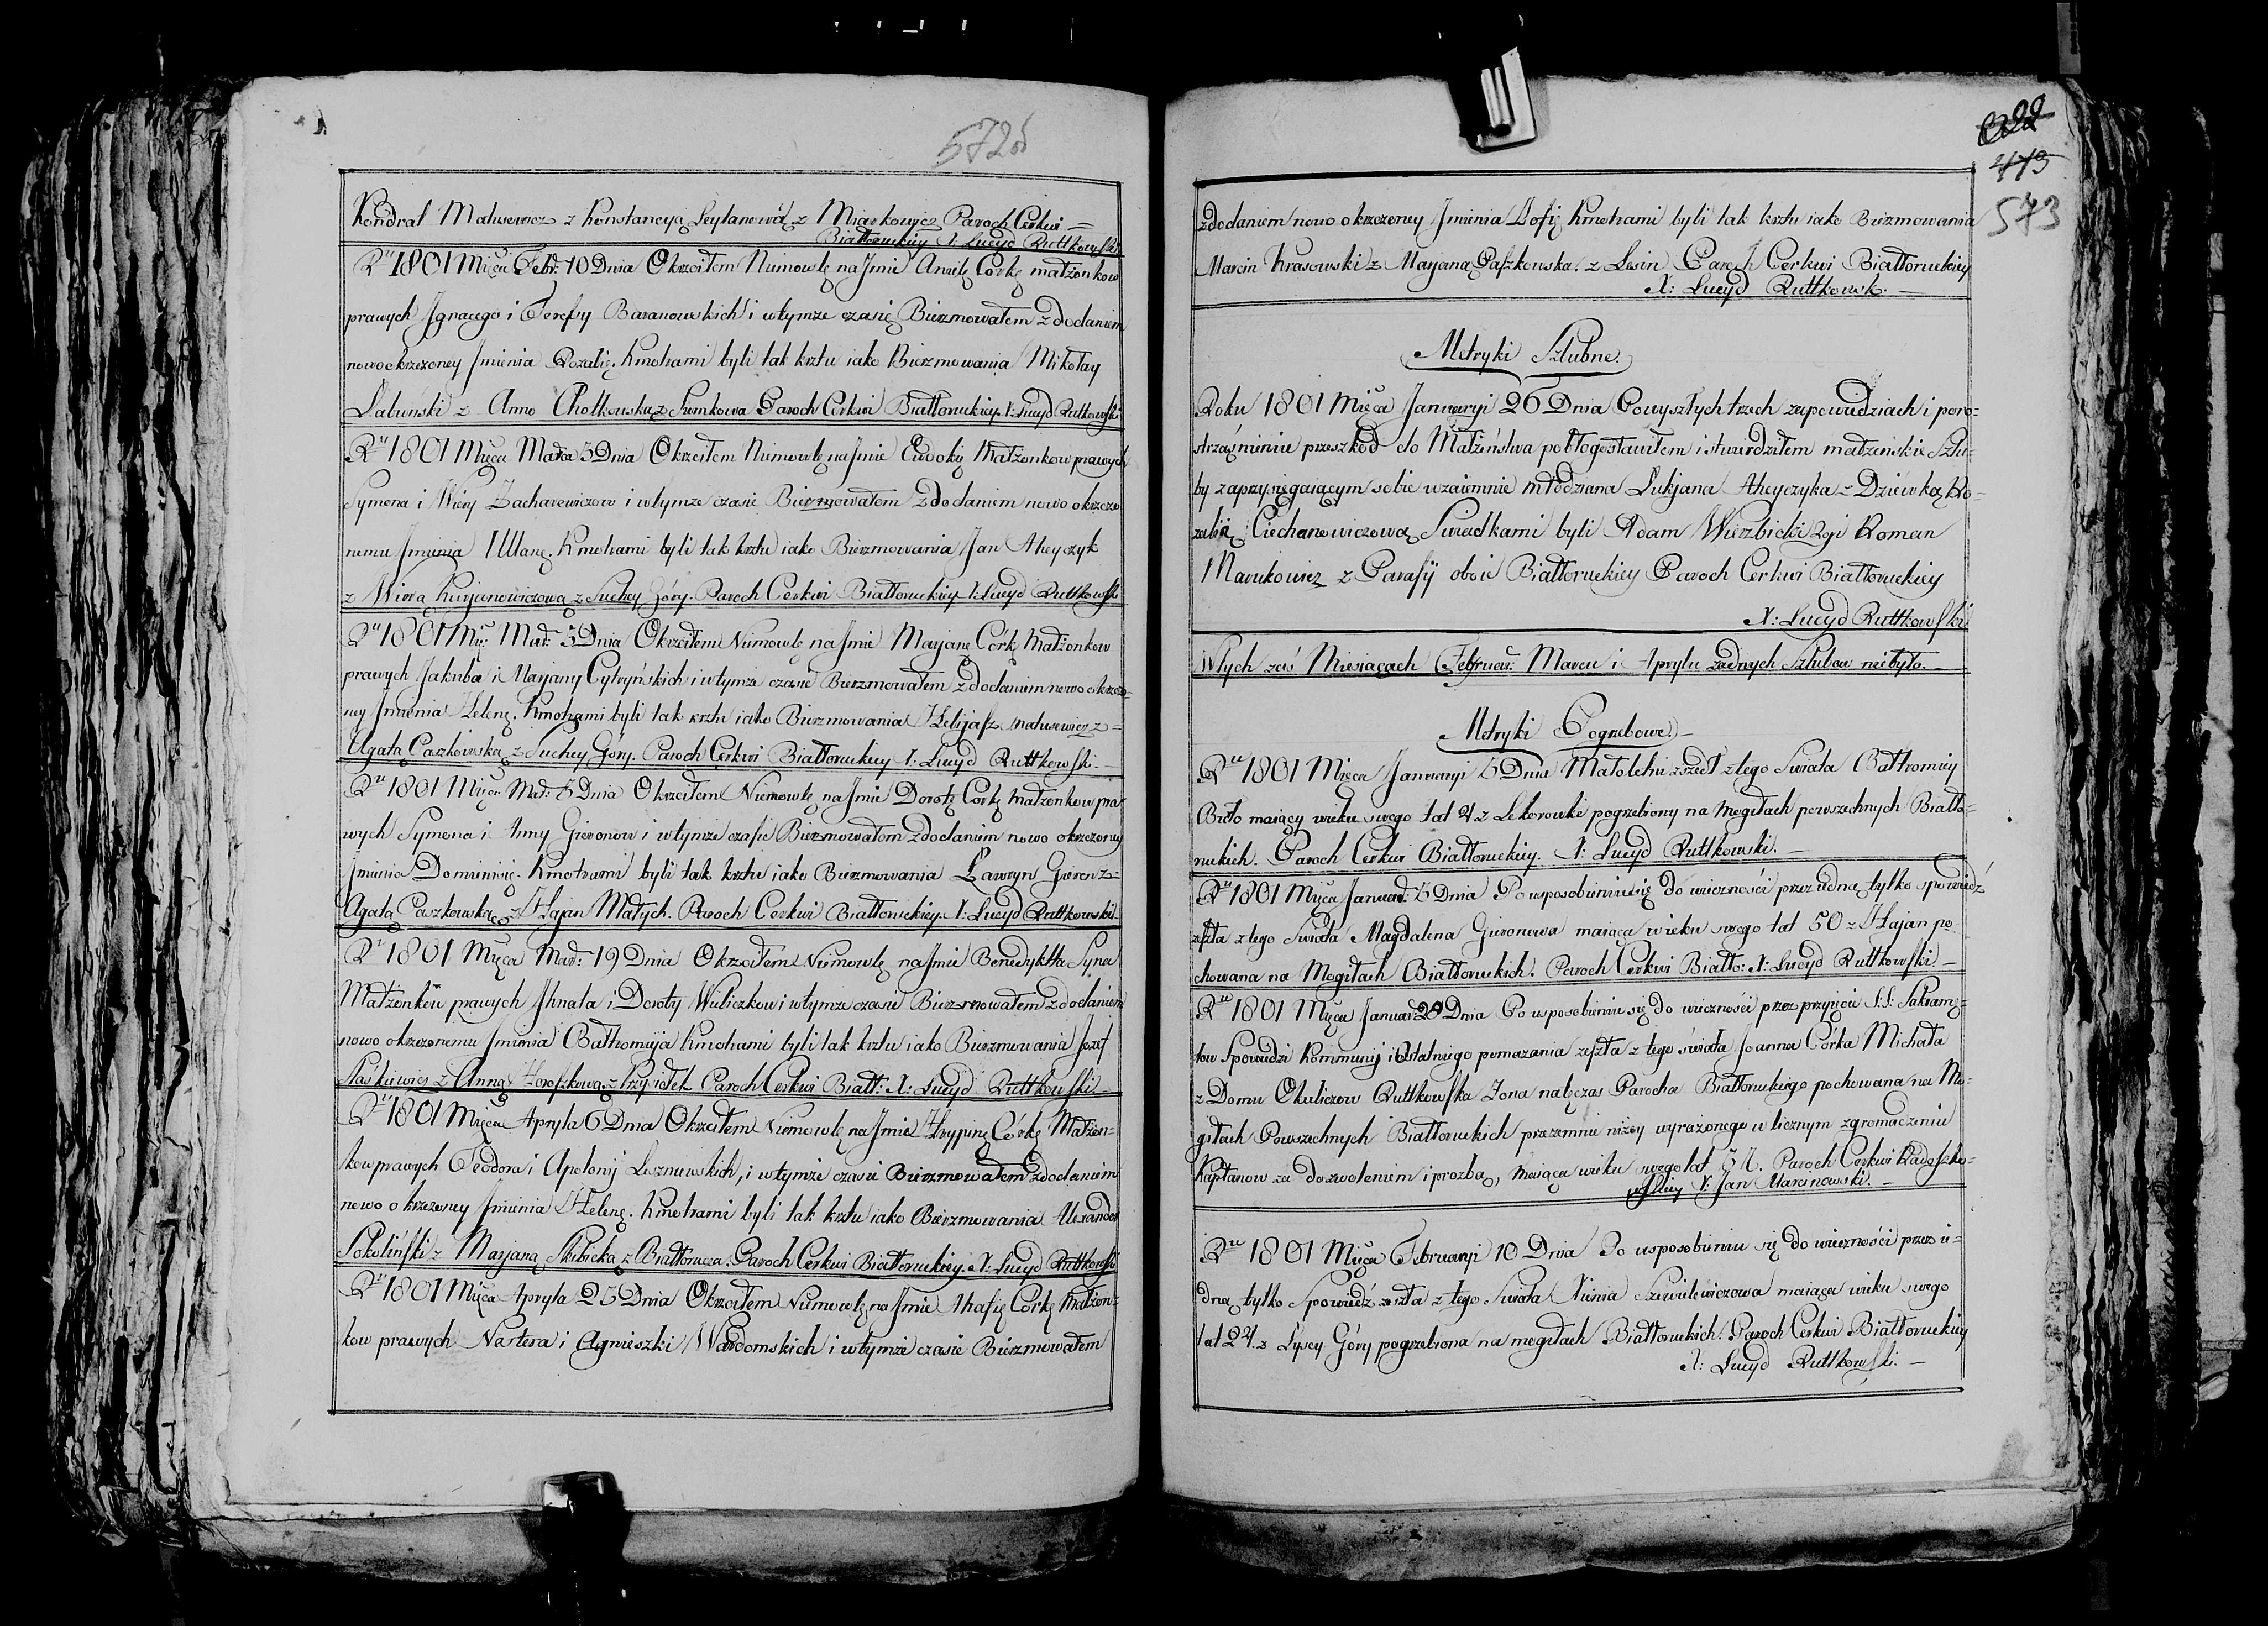 572об
Kondrat Matusewicz z Konstancyą Seytanową z Miarkowicz Paroch Cerkwi =
Białłoruckiey X: Lucyd Ruttkowski
Rᵘ 1801 Mięca Febr: 10 Dnia Okrzciłem Niemowlę na Jmie Anielę Corkę małżonkow
prawych Jgnacego i Teressy Baranowskich i wtymże czasie Bierzmowałem z dodaniem
nowo okrzczoney Jmienia Rozalię. Kmotrami byli tak krztu iako Bierzmowania Mikołay
Łabuński z Anno Chotkowską z Sumkowa Paroch Cerkwi Białłoruckiey X: Lucyd Ruttkowski
Rᵘ 1801 Mięca Marca 3 Dnia Okrzciłem Niemowlę na Jmie Ewdokię Małżonkow prawych
Symona i Wiery Zacharewiczow i wtymże czasie Bierzmowałem z dodaniem nowo okrzczo
nemu Jmienia Ullanę. Kmotrami byli tak krztu iako Bierzmowania Jan Aheyczyk
z Wierą Kuryanowiczową z Suchey Góry. Paroch Cerkwi Białłoruckiey X: Lucyd Ruttkowski
Rᵘ 1801 Mię: Mar: 3 Dnia Okrzciłem Niemowlę na Jmie Marjanę Córkę Małżonkow
prawych Jakuba i Marjany Cytryńskich i wtymże czasie Bierzmowałem z dodaniem nowo okrzczo=
ney Jmienia Helenę. Kmotrami byli tak krztu iako Bierzmowania Helijasz Matusewicz z =
Agatą Paszkowską z Suchey Góry. Paroch Cerkwi Białłoruckiey X: Lucyd Ruttkowski. —
Rᵘ 1801 Mięca Mar: 5 Dnia Okrzciłem Niemowlę na Jmie Dorotę Corkę małżonkow pra
wych Symona i Anny Gieronow i wtymże czasie Bierzmowałem z dodaniem nowo okrzczoney
Jmienia Dominisię. Kmotrami byli tak krztu iako Bierzmowania Ławryn Gieron z =
Agatą Paszkowską z Hajan Małych. Paroch Cerkwi Białłoruckiey. X: Lucyd Ruttkowski
Rᵘ 1801 Mięca Mar: 19 Dnia Okrzciłem Niemowlę na Jmie Benedykta Syna
Małżonkow prawych Jhnata i Doroty Wieliczkow i wtymże czasie Bierzmowałem z dodaniem
nowo okrzczonemu Jmienia Bałtromieja Kmotrami byli tak krztu iako Bierzmowania Jozef
Staśkiewicz z Anną Horoszkową z Przysiołek Paroch Cerkwi Białł: X: Lucyd Ruttkowski —
Rᵘ 1801 Mięca Apryla 6 Dnia Okrzciłem Niemowlę na Jmie Hrypinę Córkę Małżon=
kow prawych Teodora i Apolonij Lesznewskich, i wtymże czasie Bierzmowałem z dodaniem
nowo okrzczoney Jmienia Helenę. Kmotrami byli tak krztu iako Bierzmowania Alexander
Sokoliński z Marjaną Skibicką z Białłorucza. Paroch Cerkwi Białłoruckiey. X: Lucyd Ruttkowski
Rᵘ 1801 Mięca Apryla 25 Dnia Okrzciłem Niemowlę na Jmie Ahafię Córkę Małżon=
kow prawych Nastera i Agnieszki Wardomskich i wtymże czasie Bierzmowałem
473
573
z dodaniem nowo okrzczoney Jmienia Zofię Kmotrami byli tak krztu iako Bierzmowania
Marcin Krasowski z Marjaną Paszkowską. z Lesin Paroch Cerkwi Białłoruckiey
X: Lucyd Ruttkowsk. —
Metryki Szlubne.
Roku 1801 Mięca Januaryi 26 Dnia Powyszłych trzech zapowiedziach i poro=
strząśnieniu przeszkod do Małżeństwa pobłogosławiłem i stwierdziłem małżeńskie Szlu=
by zaprzysięgaiącym sobie wzaiemnie młodziana Łukjana Aheyczyka z Dziewką Ro=
zalią Ciechanowiczową Swiadkami byli Adam Wierzbicki 2gi Roman
Marukowicz z Parafij oboie Białłoruckiey Paroch Cerkwi Białłoruckiey
X: Lucyd Ruttkowski
Wtych zaś Miesiącach Februar: Marcu i Aprylu żadnych Szlubow niebyło. —
Metryki Pogrzebowe. —
Rᵘ 1801 Mięca Januaryi 5 Dnia Małoletni zszedł z tego Swiata Bałtromiey
Buto maiący wieku swego lat 4 z Lekarowki pogrzebiony na Mogiłach powszechnych Białło=
ruckich. Paroch Cerkwi Białłoruckiey. X: Lucyd Ruttkowski. —
Rᵘ 1801 Mięca Januar: 5 Dnia Po usposobieniu się do wieczności przez iedną tylko spowiedź
zeszła z tego Swiata Magdalena Gieronowa maiąca wieku swego lat 50 z Hajan po
chowana na Mogiłach Białłoruckich. Paroch Cerkwi Białło: X: Lucyd Ruttkowski. —
Rᵘ 1801 Mięca Januar: 29 Dnia Po usposobieniu się do wieczności przez przyięcie S.S: Sakram=
tow Spowiedzi Kommunij i Ostatniego pomazania zeszła z tego świata Joanna Córka Michała
z Domu Okuliczow Ruttkowska Żona natęczas Parocha Białłoruckiego pochowana na Mo=
giłach Powszechnych Białłoruckich przezemnie niżey wyrażonego w licznym zgromadzeniu
Kapłanow za dozwoleniem i prozbą, maiąca wieku swego lat Paroch Cerkwi Radoszko=
wskiey X: Jan Marcinowski. —
Rᵘ 1801 Mięca Februaryi 10 Dnia Po usposobieniu się do wieczności przez ie=
dną tylko Spowiedź zeszła z tego Swiata Xienia Szewilewiczowa maiąca wieku swego
lat 24. z Łysey Góry pogrzebiona na mogiłach Białłoruckich. Paroch Cerkwi Białłoruckiey
X: Lucyd Ruttkowski. —